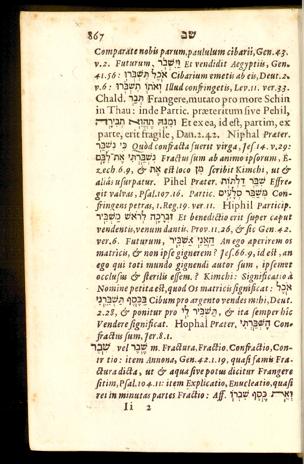 867 שב
Comparate nobis parum, paululum cibarii, Gen. 43.
v. 2. Futurum, וַיִּשְׁבֹּר Et vendidit Aegyptiis, Gen.
41. 56: אֹכֶל תִּשְׁבְּרוּ Cibarium emetis ab eis, Deut. 2.
v. 6: וְאֹתוֹ תִשְׁבֹּרוּ Illud confringetis, Lev. 11. ver. 33.
Chald. תְּבַר Frangere, mutato pro more Schin
in Thau: inde Partic. præteritum sive Pehil,
וּמִנַּהּ תֶּהֱוֵא תְבִירָה Et ex ea, id est, partim, ex
parte, erit fragile, Dan. 2. 42. Niphal Præter.
כִּי נִשְׁבַּר Quòd confracta fuerit virga, Jes. 14. v. 29:
נִשְׁבַּרְתִּי אֶת־לִבָּם Fractus sum ab animo ipsorum, E-
zech 6. 9, & את est loco מן scribit Kimchi, ut &
aliàs usurpatur. Pihel Præter. שִׁבַּר דַּלְתוֹת Effre-
git valvas, Psal. 107. 16. Partic. מְשַׁבֵּר סְלָעִים Con-
fringens petras, 1. Reg. 19. ver. 11. Hiphil Particip.
וּבְרָכָה לְרֹאשׁ מַשְׁבִּיר Et benedictio erit super caput
vendentis, venum dantis. Prov. 11. 26, & sic Gen. 42.
ver. 6. Futurum, הַאֲנִי אַשְׁבִּיר An ego aperirem os
matricis, & non ipse gignerem? Jes. 66. 9, id est, an
ego qui toti mundo gignendi autor sum, ipsemet
occlusus & sterilis essem? Kimchi: Significatio à
Nomine petita est, quod Os matricis significat: אֹכֶל
בַּכֶּסֶף תַּשְׁבִּרֵנִי Cibum pro argento vendes mihi, Deut.
2. 28, & ponitur pro תַּשְׁבִּיר לִי, & ita semper hîc
Vendere significat. Hophal Præter, הָשְׁבָּרְתִּי Con-
fractus sum, Jer. 8. 1.
שֶׁבֶר vel שֵׁבֶר m. Fractura. Fractio. Confractio, Con-
tritio: item Annona, Gen. 42. 1. 19, quasi famis Fra-
ctura dicta, ut & aqua sive potus dicitur Frangere
sitim, Psal. 104. 11: item Explicatio, Enucleatio, quasi
rei in minutas partes Fractio: Aff.
Ii 2